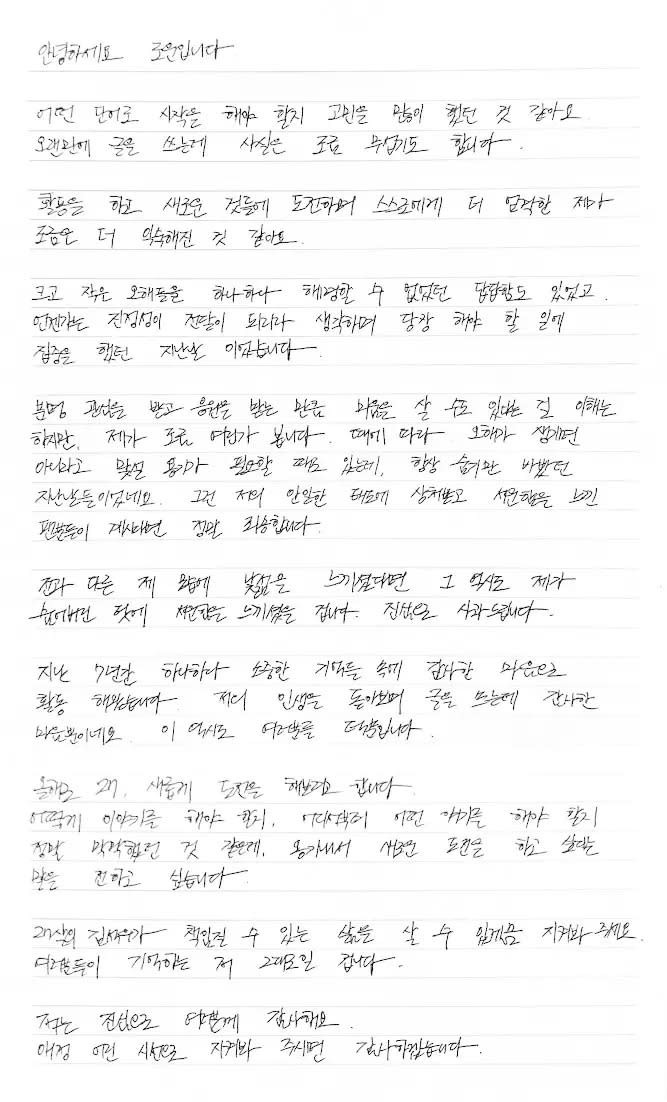 안녕하세요 로운입니다
어떤 단어로 시작을 해야 할지 고민을 많이 했던 것 같아요
오랜만에 글을 쓰는데 사실은 조금 무섭기도 합니다.
활동을 하고 새로운 것들에 도전하며 스스로에게 더 엄격한 제가
조금은 더 익숙해진 것 같아요.
크고 작은 오해들을 하나하나 해명할 수 없었던 답답함도 있었고.
언젠가는 진정성이 전달이 되리라 생각하며 당장 해야 할 일에
집중을 했던 지난날 이었습니다.
분명 관심을 받고 응원을 받는 만큼 미움을 살 수도 있다는 걸 이해는
하지만, 제가 조금 여린가 봅니다. 때에 따라 오해가 생기면
아니라고 맞설 용기가 필요할 때도 있는데, 항상 숨기만 바빴던
지난날들이었네요. 그런 저의 안일한 태도에 상처받고 서운함을 느낀
팬분들이 계시다면 정말 죄송합니다.
전과 다른 제 모습에 낯설음을 느끼셨다면 그 역시도 제가
숨어버린 탓에 서운함을 느끼셨을 겁니다. 진심으로 사과드립니다.
지난 7년간 하나하나 소중한 기억들 속에 감사한 마음으로
활동 해왔습니다. 저의 인생을 돌아보며 글을 쓰는데 감사한
마음뿐이네요. 이 역시도 여러분들 덕분입니다.
올해로 27. 새롭게 도전을 해보려고 합니다.
어떻게 이야기를 해야 할지, 어디서부터 어떤 얘기를 해야 할지
정말 막막했던 것 같은데, 용기내서 새로운 도전을 하고 싶다는
말을 전하고 싶습니다.
27살의 김석우가 책임질 수 있는 삶을 살 수 있게끔 지켜봐 주세요.
여러분들이 기억하는 저 그대로일 겁니다.
저는 진심으로 여러분께 감사해요.
애정 어린 시선으로 지켜봐 주시면 감사하겠습니다.